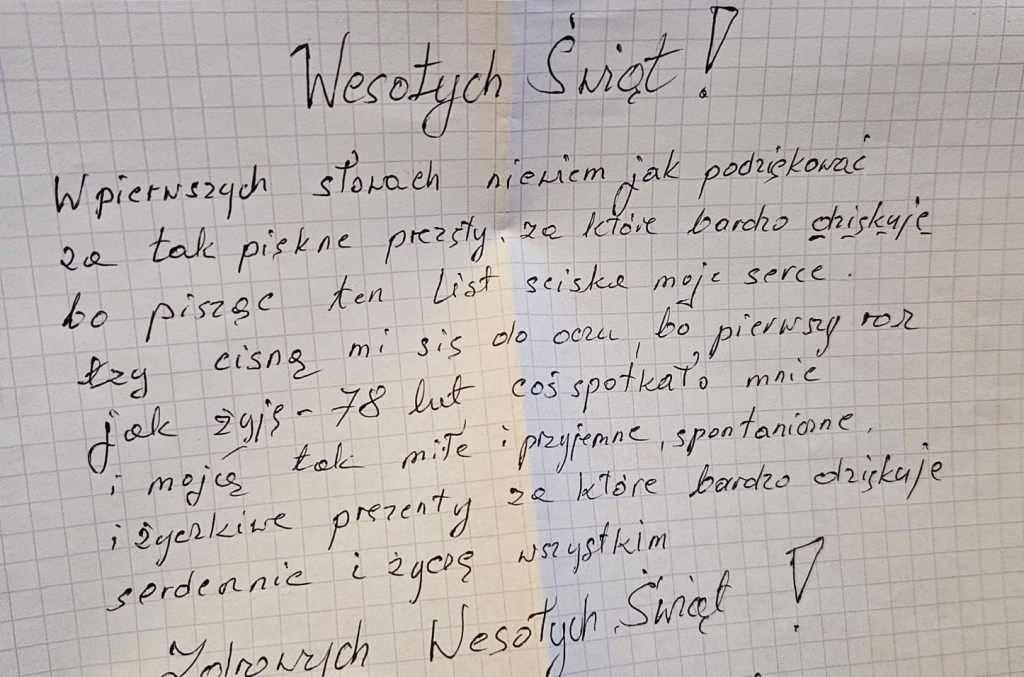 Wesołych Świąt!
W pierwszych słowach niewiem jak podziękować
za tak piękne prezęty, za które bardzo dziękuję
bo pisząc ten list sciska moje serce.
łzy cisną mi się do oczu, bo pierwszy roz
jak żyję - 78 lut coś spotkało mnie
i mojcą tak miłe i przyjemne, spontaniczne,
i życzkiwe prezenty za które bardzo dziękuje
serdecznie i życzę wszystkim
Zdrowych Wesołych Świąt!